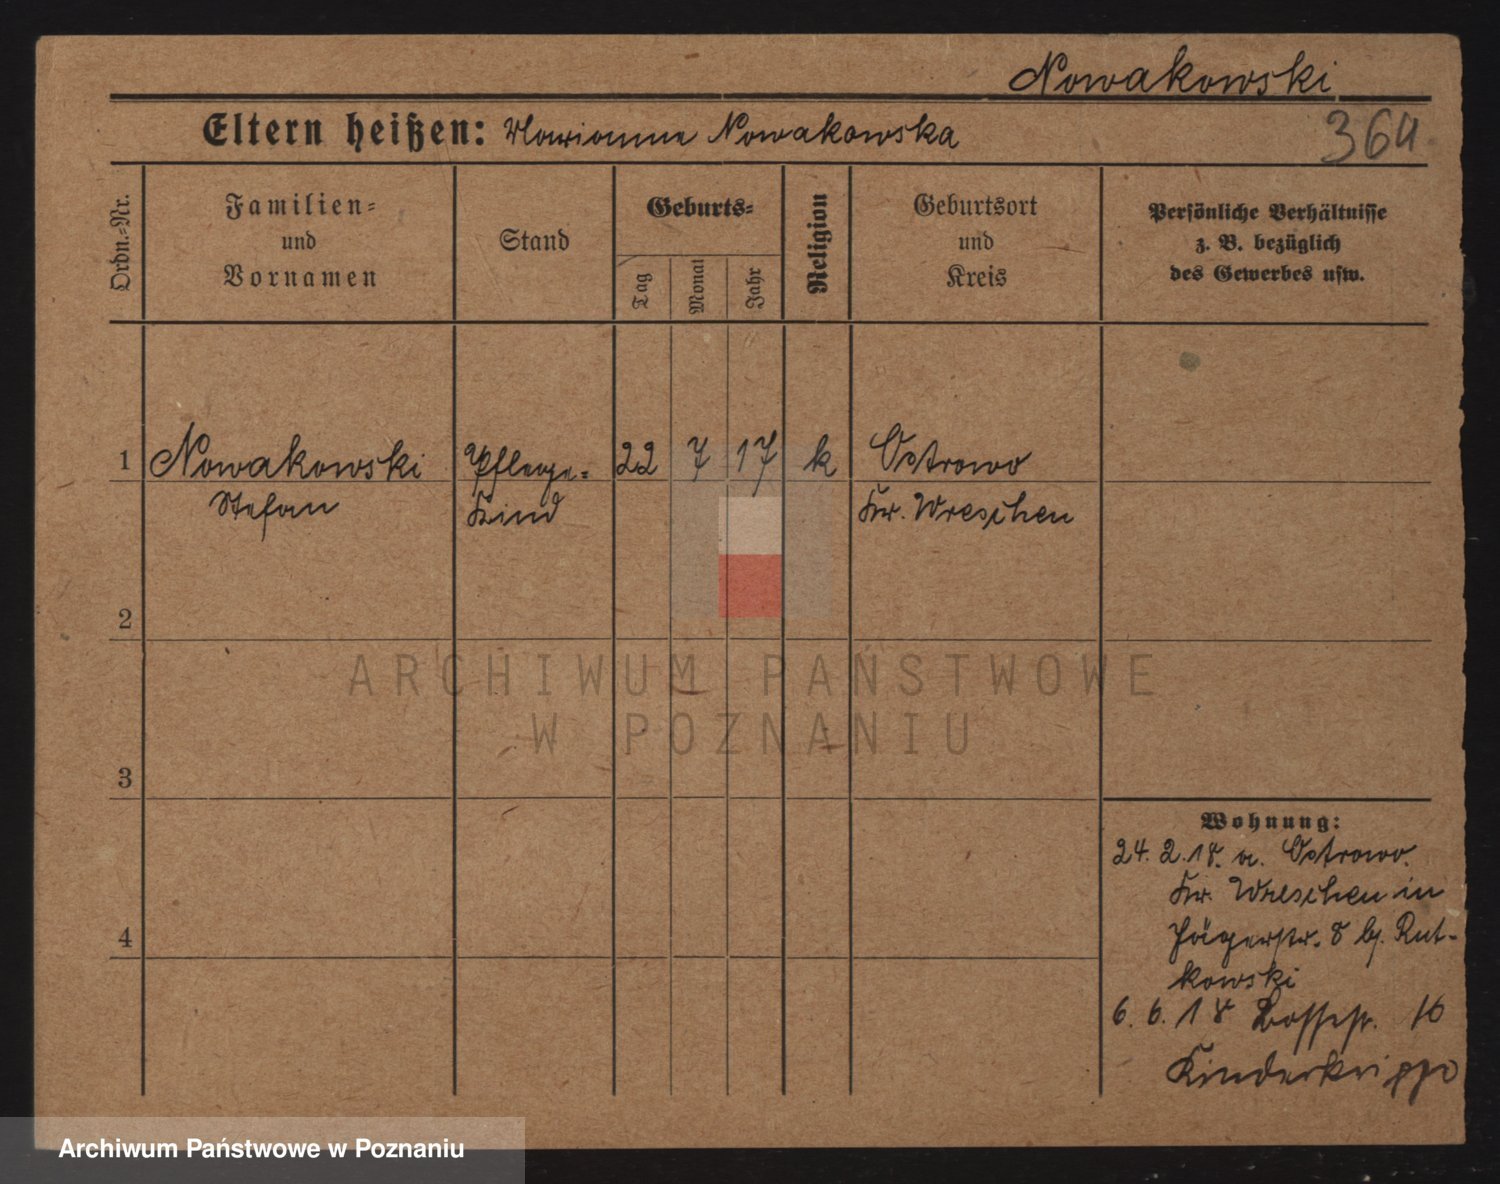 Nowakowski
Eltern heißen: Marianna Nowakowska
364.
Ordn.-Nr.
Familien-
und
Vornamen
Stand
Geburts-
Tag
Monat
Jahr
Religion
Geburtsort
und
Kreis
Persönliche Verhältnisse
z. B. bezüglich
des Gewerbes usw.
1 Nowakowski Pflege- 22 7 17 k Ostrowo
Stefan Kind Kr. Wreschen
2
ARCHIWUM PAŃSTWOWE
W POZNANIU
3
Wohnung:
24. 2. 18. a. Ostrowo.
Kr. Wreschen in
4
Jägerstr. 8 b. Rut-
kowski
6. 6. 18 16
Kinderkrippe
Archiwum Państwowe w Poznaniu